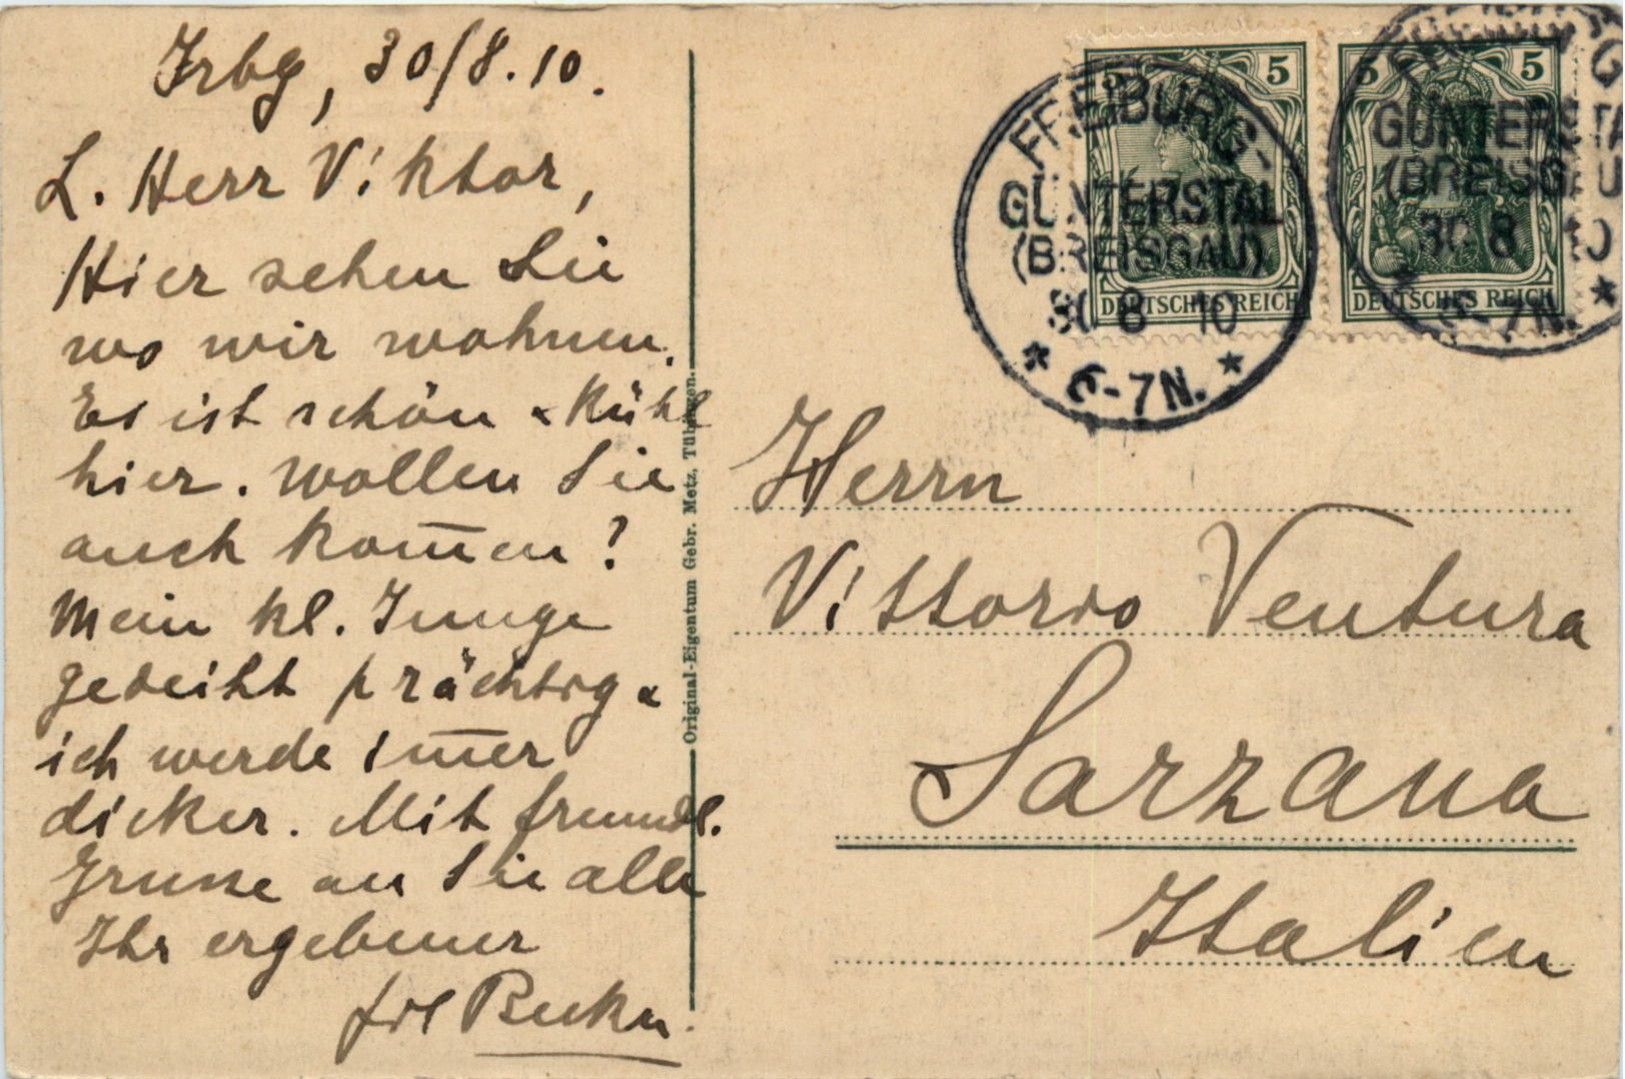 Frbg, 30/8.10.
L. Herr Viktor,
Hier sehen Sie
wo wir wohnen.
Es ist schön & kühl
hier. Wollen Sie
auch kom̅en?
Mein kl. Junge
gedeiht prächtig &
ich werde im̅er
dicker. Mit freundl.
Grusse an Sie alle
Ihr ergebener
Original-Eigentum Gebr. Metz, Tübingen.
5
DEUTSCHES REICH
FREIBURG-
GÜNTERSTAL
(BREISGAU)
30 8 10
* 6-7N. *
5 5
DEUTSCHES REICH
GÜNTERSTA
(BREISGAU
30 8 10
6-7N. *
Herrn
Vittorio Ventura
Sarzana
Italien